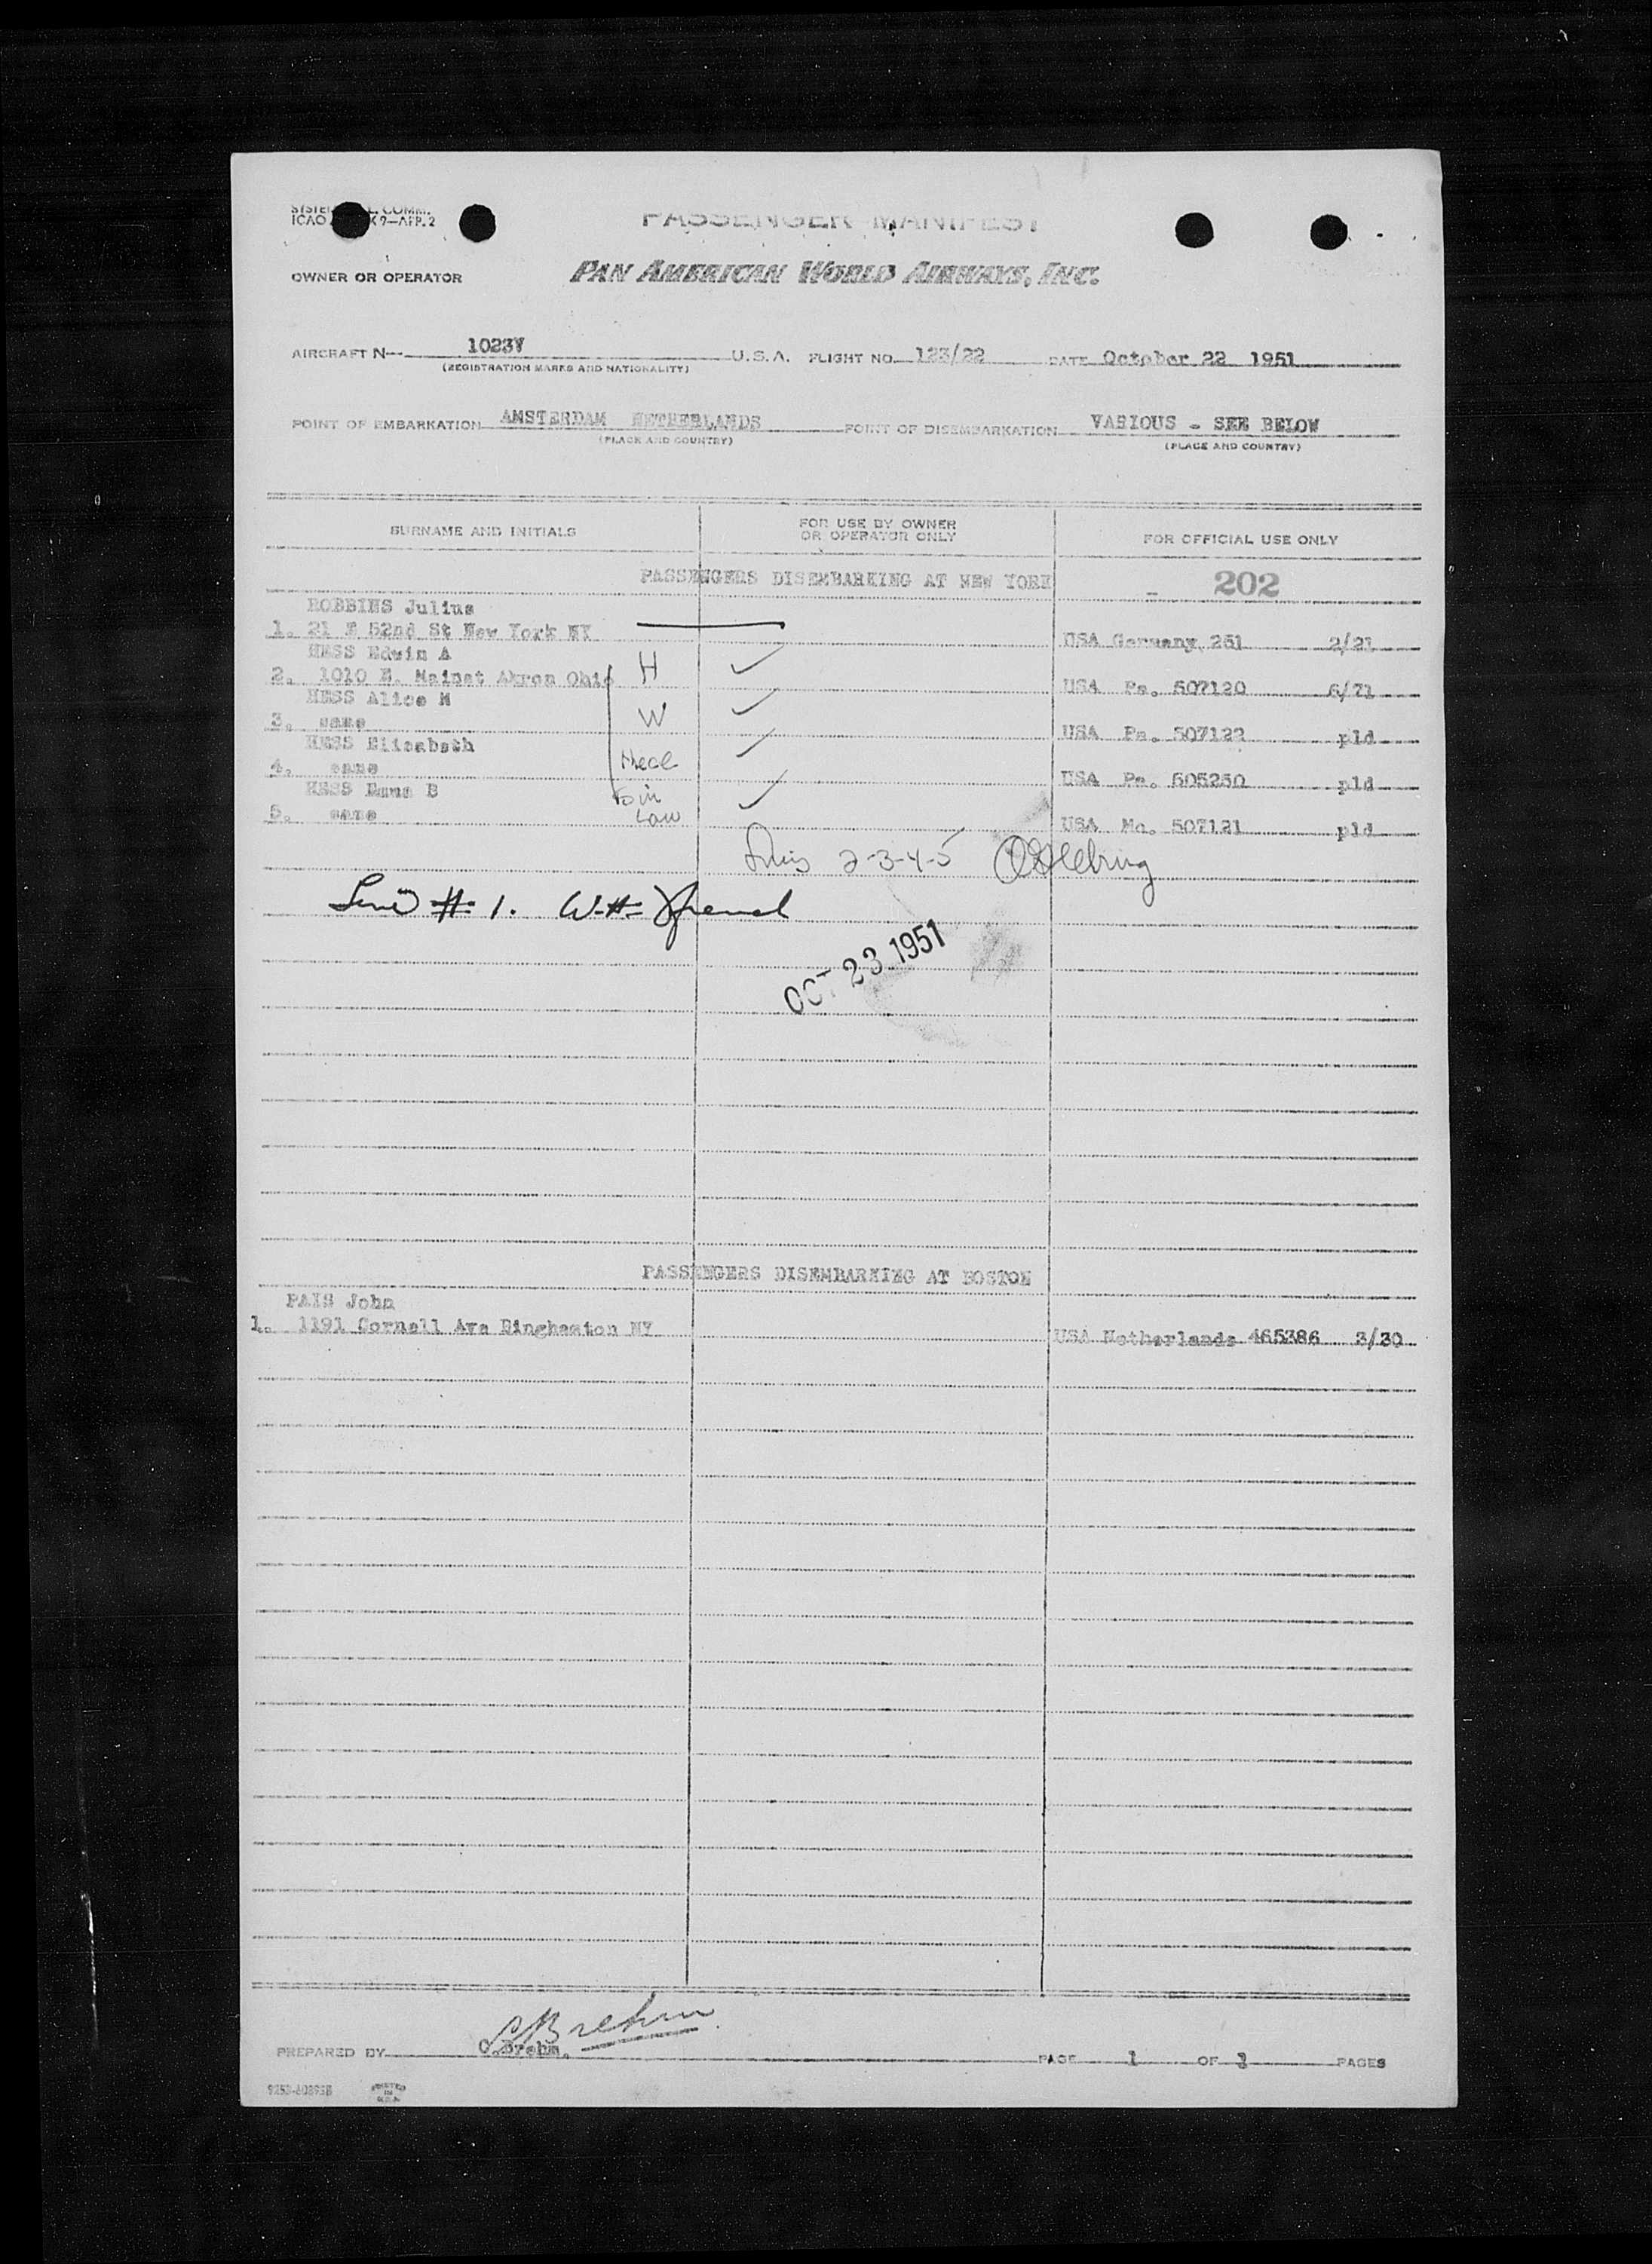 PASSENGER MANIFEST
OWNER OR OPERATOR
PAN AMERICAN WORLD AIRWAYS, INC.
AIRCRAFT N-- 1023V U.S.A. FLIGHT NO. 123/22 DATE October 22 1951
(REGISTRATION MARKS AND NATIONALITY)
POINT OF EMBARKATION AMSTERDAM NETHERLANDS POINT OF DISEMBARKATION VARIOUS - SEE BELOW
(PLACE AND COUNTRY) (PLACE AND COUNTRY)
SURNAME AND INITIALS FOR USE BY OWNER OR OPERATOR ONLY FOR OFFICIAL USE ONLY
PASSENGERS DISEMBARKING AT NEW YORK 202
ROBBINS Julius
1. 21 E 52nd St New York NY USA Germany 261 2/21
HESS Edwin A
2. 1010 E. Mainst Akron Ohio H USA Pa. 507120 6/71
HESS Alice M
3. same W USA Pa. 507122 pld
HESS Elizabeth
4. same USA Pa. 505250 pld
HESS Emma B
5. same Law USA Mo. 507121 pld
2-3-4-5
# 1.
OCT 23 1951
PASSENGERS DISEMBARKING AT BOSTON
PAIS John
1. 1191 Cornell Ave Binghamton NY USA Netherlands 465386 3/30
PREPARED BY C.Brehm. PAGE 1 OF PAGES
PRINTED IN U.S.A.